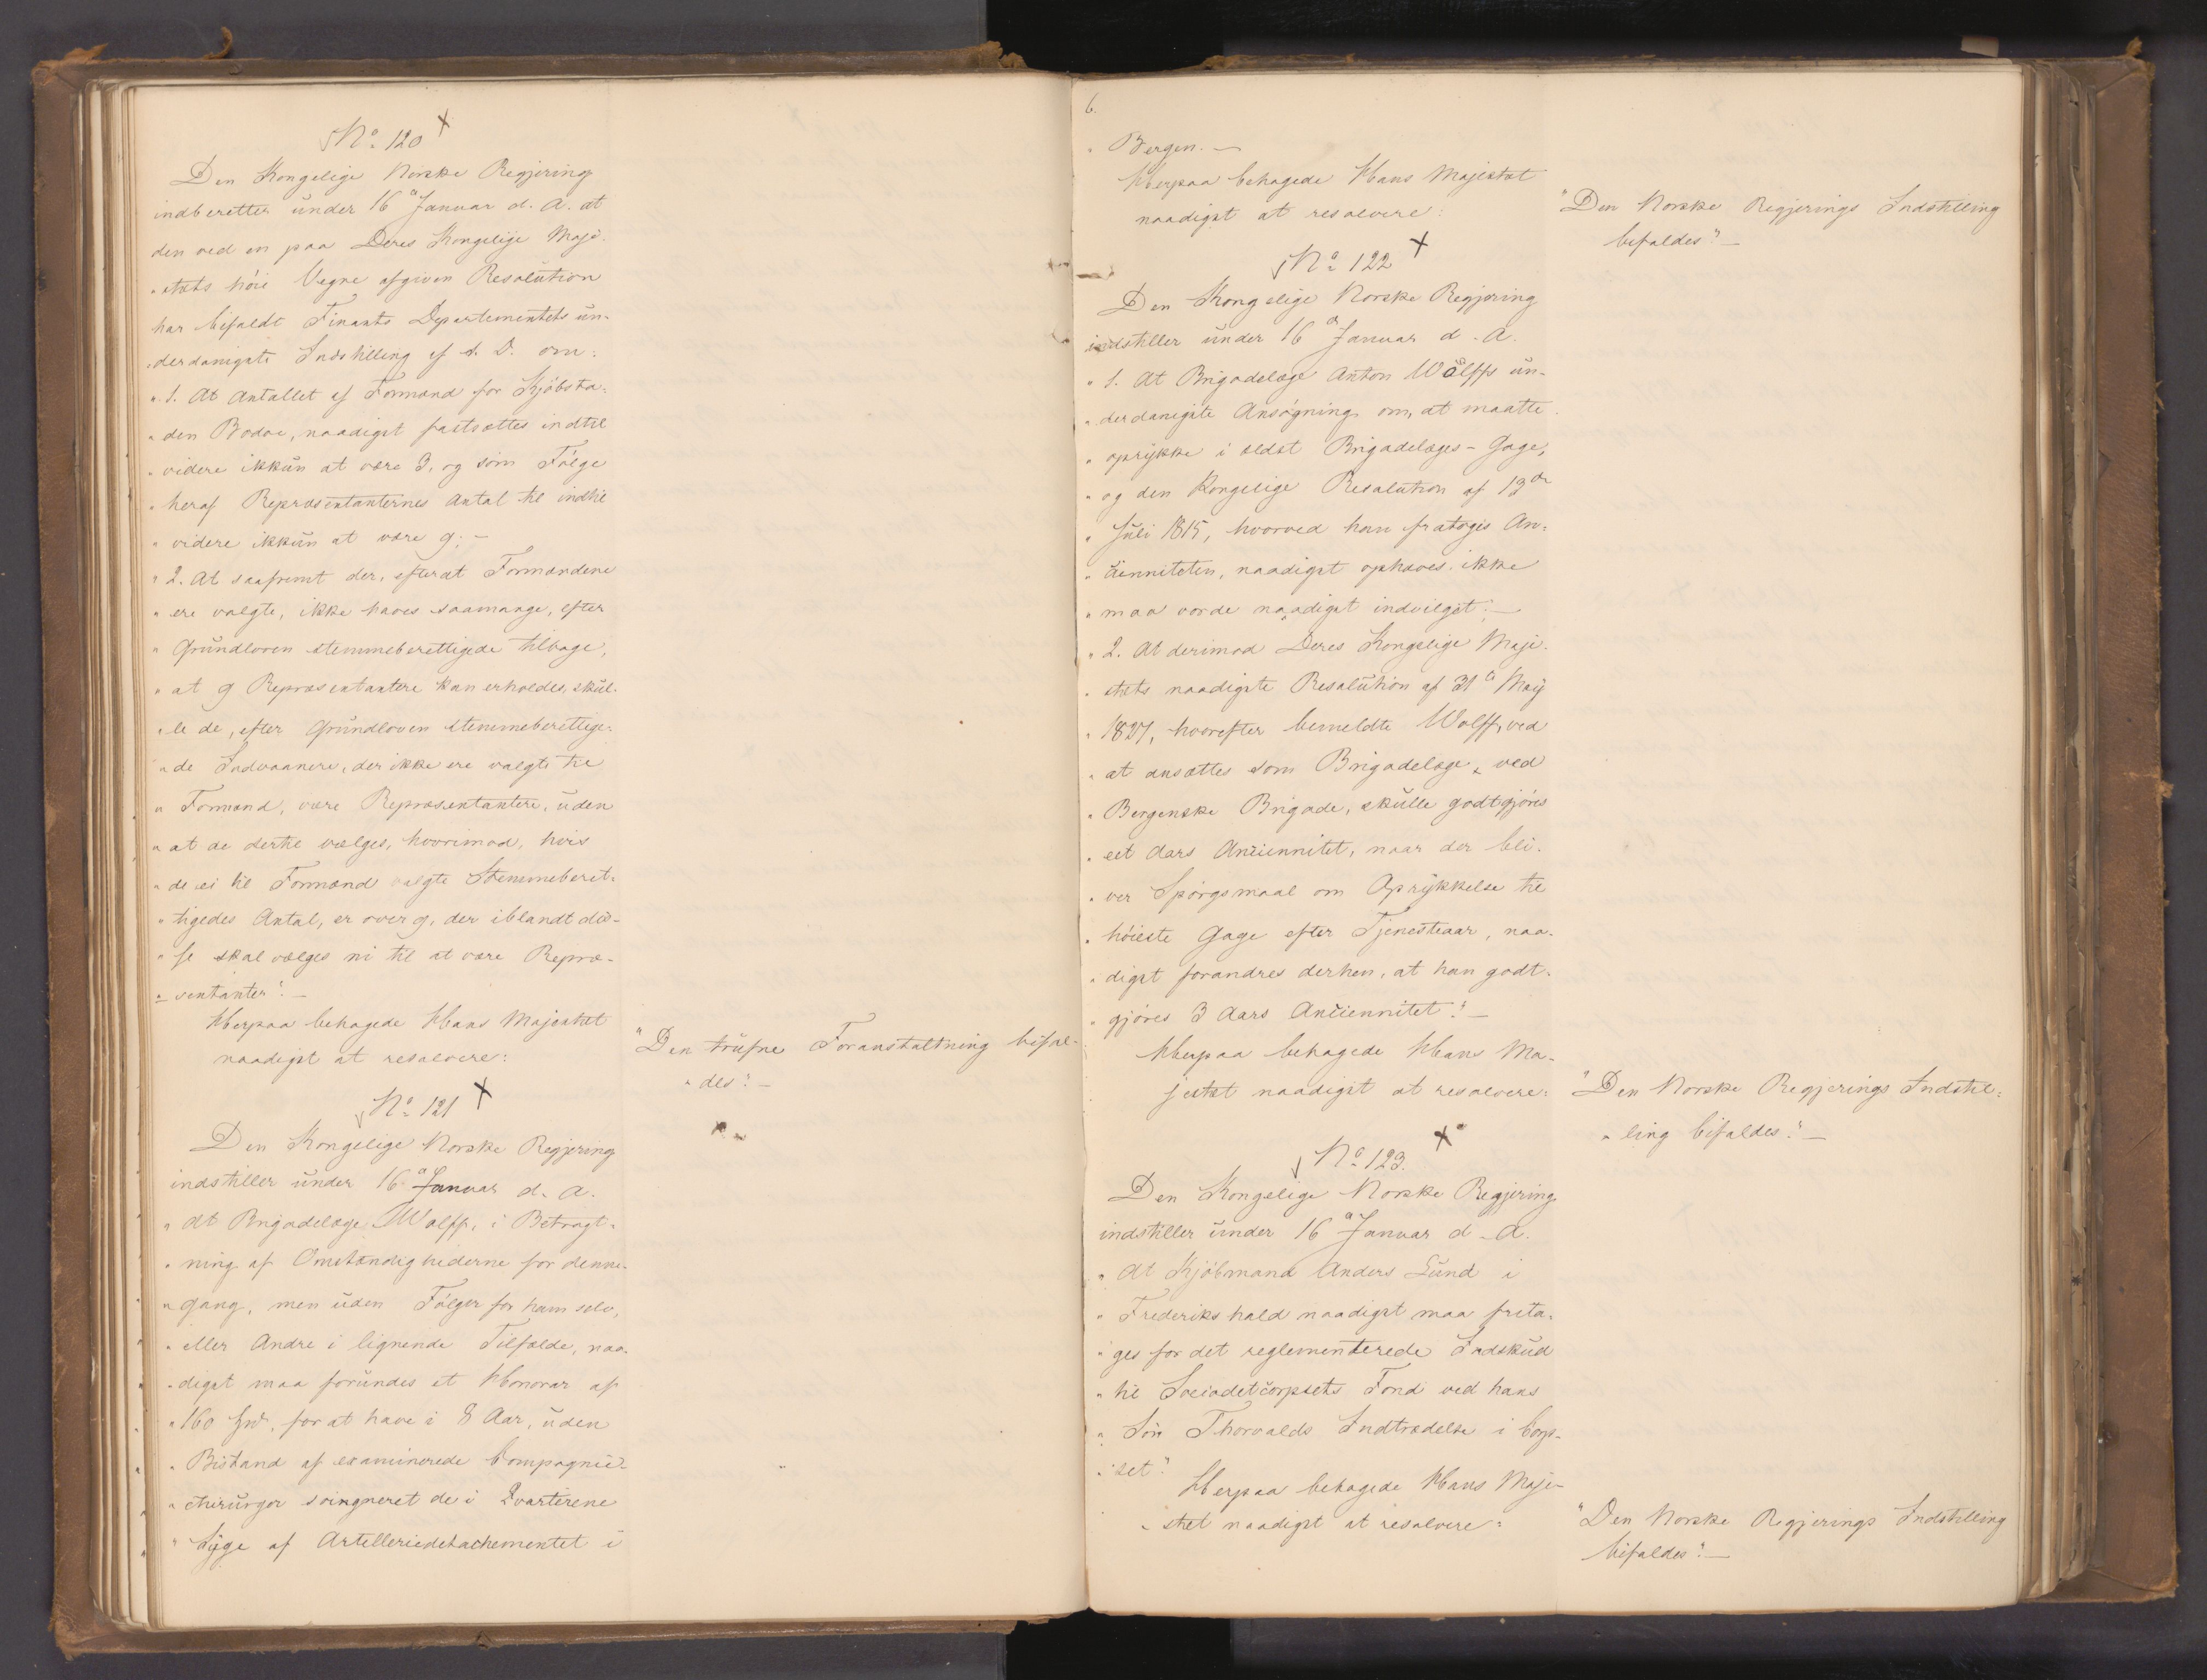 No 120 X
Den Kongelige Norske Regjering
indberetter under 16 d Januar d. A. at
den ved en paa Deres Kongelige Maje-
„stæts höie Vegne afgiven Resolution
har bifaldt Finants Departementets un-
„derdanigste Indstilling af s. D. om:
„1. At Antallet af Formænd for Kjöbsta-
„den Bodøe, naadigst fastsættes indtil
„videre ikkun at være 3, og som Fölge
„heraf Repræsentanternes Antal til indtil
„videre ikkun at være 9; -
„2. At saafremt der, efterat Formændene
„ere valgte, ikke haves saamange, efter
„Grundloven stemmeberettigede tilbage,
„at 9 Repræsentantere kan erholdes, skul-
„le de, efter Grundloven stemmeberettige-
„de Indvaanere, der ikke ere valgte til
„Formænd, være Repræsentantere, uden
„at de dertil vælges, hvorimod, hvis
„de ei til Formænd valgte Stemmeberet-
„tigedes Antal, er over 9, der iblandt dis-
„se skal vælges ni til at være Repræ-
„sentanter". -
Herpaa behagede Hans Majestæt
naadigst at resolvere:
"Den trufne Foranstaltning bifal-
„des". -
No 121 X
Den Kongelige Norske Regjering
indstiller under 16 d Januar d. A.
„At Brigadelæge Wolff, i Betragt-
„ning af Omstændighederne for denne-
„gang, men uden Fölger for ham selv,
„eller Andre i lignende Tilfælde, naa-
„digst maa forundes et Honorar af
„160 Spd, for at have i 8 Aar, uden
„Bistand af examinerede Compagnie-
„chirurger soingneret de i Qvarterene
„Syge af Artilleriedetachementet i
6.
„Bergen. -
Herpaa behagede Hans Majestæt
naadigst at resolvere:
"Den Norske Regjerings Indstilling
bifaldes". -
No 122 X
Den Kongelige Norske Regjering
indstiller under 16 d Januar d. A.
„1. At Brigadelæge Anton Wolffs un-
„derdanigste Ansögning om, at maatte
„oprykke i ældst Brigadelæges-Gage,
„og den Kongelige Resolution af 13de
„Juli 1815, hvorved han fratoges An-
„cienniteten, naadigst ophæves, ikke
„maa vorde naadigst indvilget; -
„2. At derimod Deres Kongelige Maje-
„stæts naadigste Resolution af 31 d May
„1827, hvorefter bemeldte Wolff, ved
„at ansættes som Brigadelæge, ved
„Bergenske Brigade, skulle godtgjöres
„eet Aars Anciennitet, naar der bli-
„ver Spörgsmaal om Oprykkelse til
„höieste Gage efter Tjenesteaar, naa-
„digst forandres derhen, at han godt-
„gjöres 3 Aars Anciennitet". -
Herpaa behagede Hans Ma-
jestæt naadigst at resolvere:
"Den Norske Regjerings Indstil-
„ling bifaldes". -
No 123. X
Den Kongelige Norske Regjering
indstiller under 16 d Januar d. A.
„At Kjöbmand Anders Lund i
„Frederikshald naadigst maa frita-
„ges for det reglementerede Indskud
„til Søcadetcorpsets Fond ved hans
„Sön Thorvalds Indtrædelse i Corp-
„set".
Herpaa behagede Hans Maje-
„stæt naadigst at resolvere:
"Den Norske Regjerings Indstilling
bifaldes". -